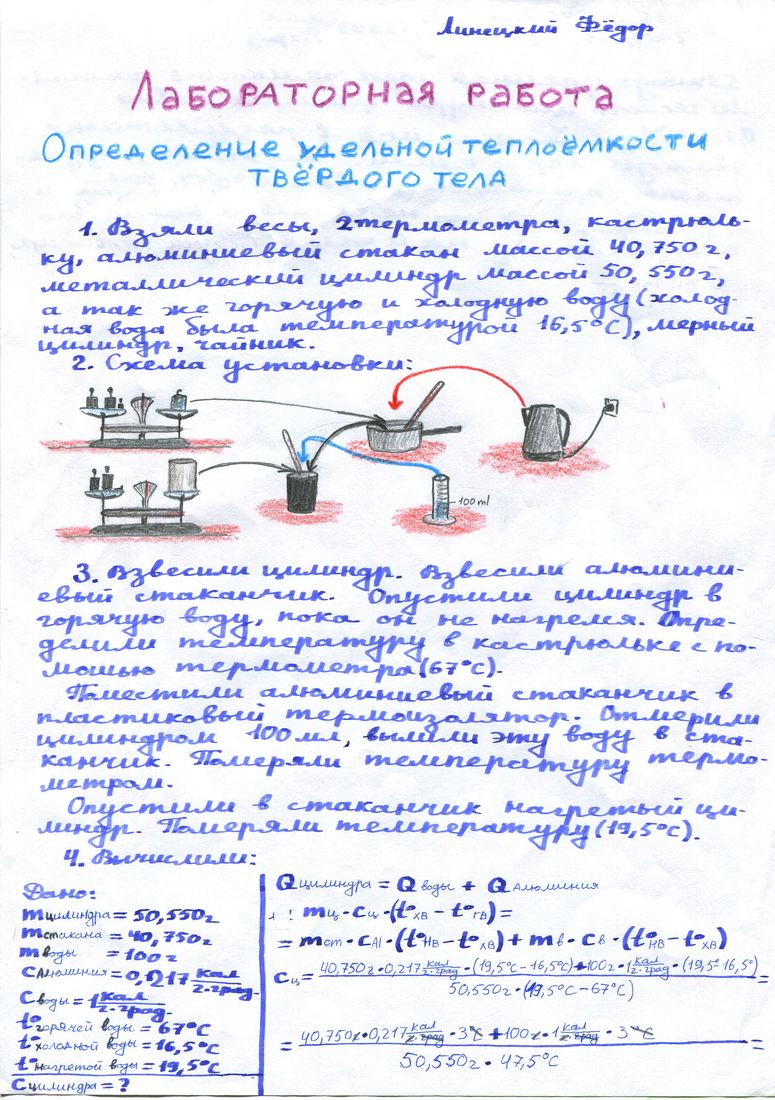 Линецкий Фёдор
Лабораторная работа
Определение удельной теплоёмкости
твёрдого тела
1. Взяли весы, 2 термометра, кастрюль-
ку, алюминиевый стакан массой 40,750 г,
металлический цилиндр массой 50,550 г,
а так же горячую и холодную воду (холод-
ная вода была температурой 16,5°C), мерный
цилиндр, чайник.
2. Схема установки:
100 ml
3. Взвесили цилиндр. Взвесили алюмини-
евый стаканчик. Опустили цилиндр в
горячую воду, пока он не нагрелся. Опре-
делили температуру в кастрюльке с по-
мощью термометра (67°C).
Поместили алюминиевый стаканчик в
пластиковый термоизолятор. Отмерили
цилиндром 100 мл, вылили эту воду в ста-
канчик. Померяли температуру термо-
метром.
Опустили в стаканчик нагретый ци-
линдр. Померяли температуру (19,5°C).
4. Вычислили:
Дано:
mцилиндра = 50,550 г
mстакана = 40,750 г
mводы = 100 г
Cалюминия = 0,217 кал/г·град.
Cводы = 1 кал/г·град.
t°горячей воды = 67°C
t°холодной воды = 16,5°C
t°нагретой воды = 19,5°C
Cцилиндра = ?
Qцилиндра = Qводы + QАлюминия
mц·cц·(t°хв - t°гв) =
= mст·cAl·(t°нв - t°хв) + mв·cв·(t°нв - t°хв)
cц = 40,750г·0,217 кал/г·град·(19,5°C - 16,5°C) + 100г·1 кал/г·град·(19,5°-16,5°) =
50,550г·(19,5°C - 67°C)
= 40,750г·0,217 кал/г·град·3°C + 100г·1 кал/г·град·3°C =
50,550г·47,5°C